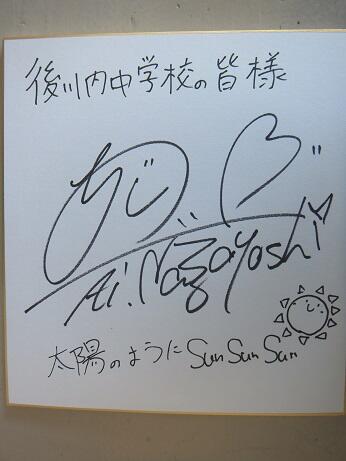 後川内中学校の皆様
Ai.Nagayoshi
太陽のように Sun Sun Sun